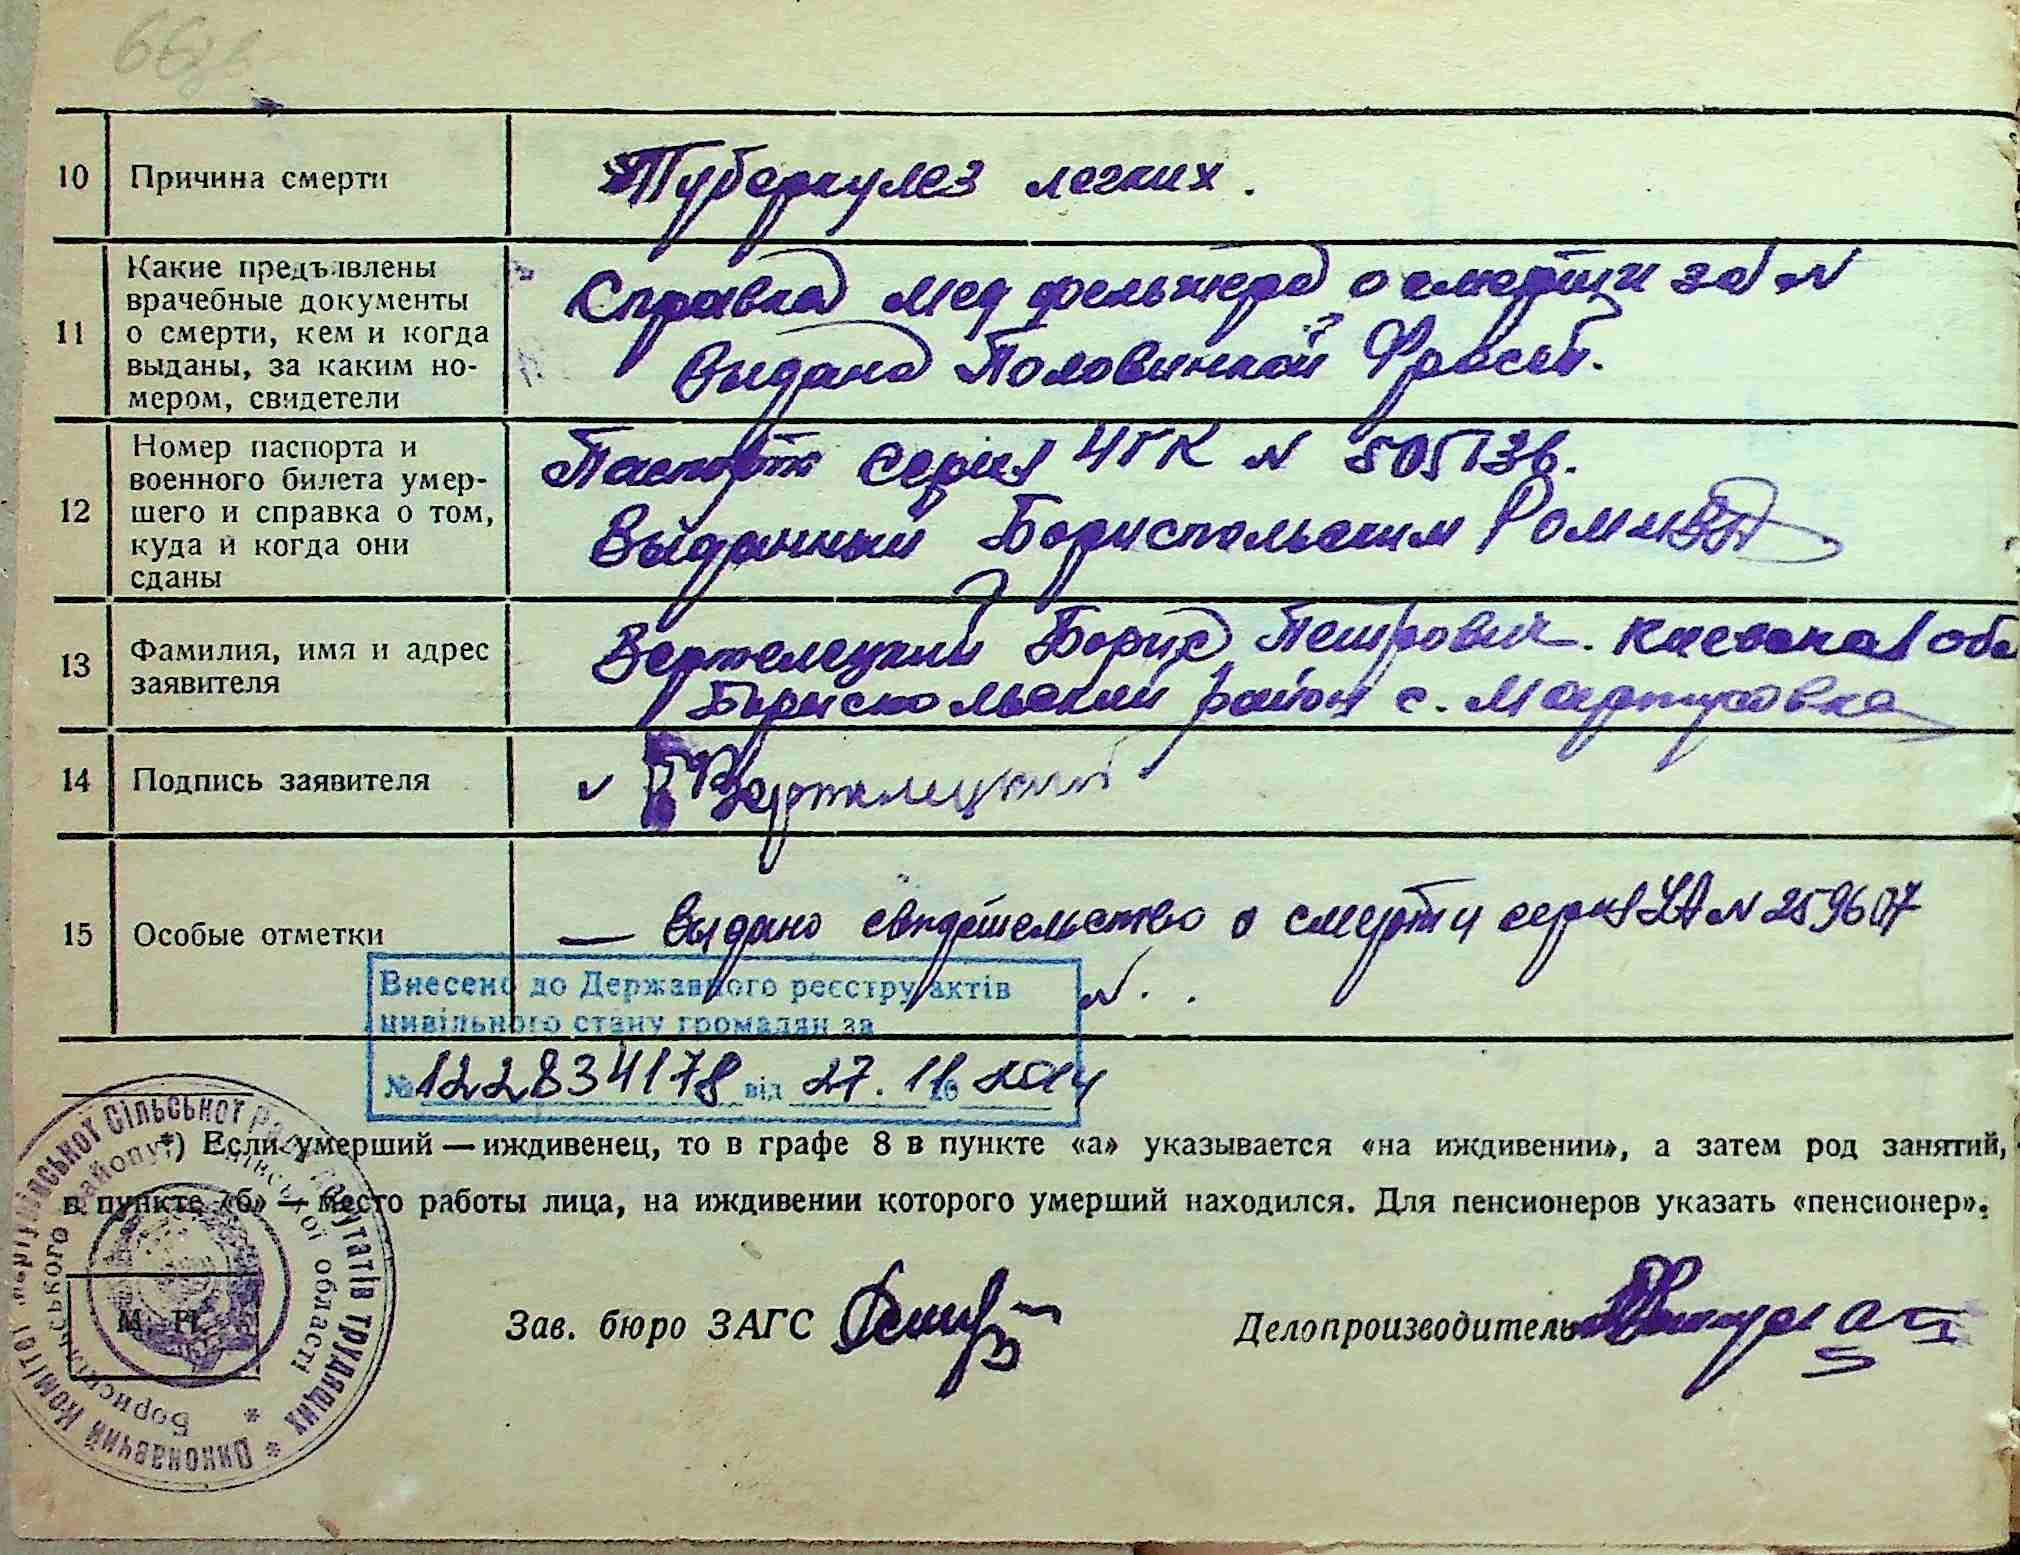 10 Причина смерти Туберкулез легких.
11 Какие предъявлены
врачебные документы
о смерти, кем и когда
выданы, за каким но-
мером, свидетели
Справка мед фельшера о смерти за N
Выдана Половинкой Фросей.
12 Номер паспорта и
военного билета умер-
шего и справка о том,
куда и когда они
сданы
Паспорт серия ЧГК N 505136.
Выданный Бориспольским
13 Фамилия, имя и адрес
заявителя
Вертелецкий Борис Петрович. Киевская обл
Бориспольский район с. Мартусовка
14 Подпись заявителя
Вертелецкий
15 Особые отметки
— Выдано свидетельство о смерти серия N 259607
N.
Внесено до Державного реєстру актів
цивільного стану громадян за
№ 122834178 від 27.11 20 2014
*) Если умерший — иждивенец, то в графе 8 в пункте «а» указывается «на иждивении», а затем род занятий,
в пункте «б» — место работы лица, на иждивении которого умерший находился. Для пенсионеров указать «пенсионер».
Виконавчий Комітет Мартусівської Сільської Ради депутатів трудящих
Бориспільського району Київської області
М. П.
Зав. бюро ЗАГС
Делопроизводитель